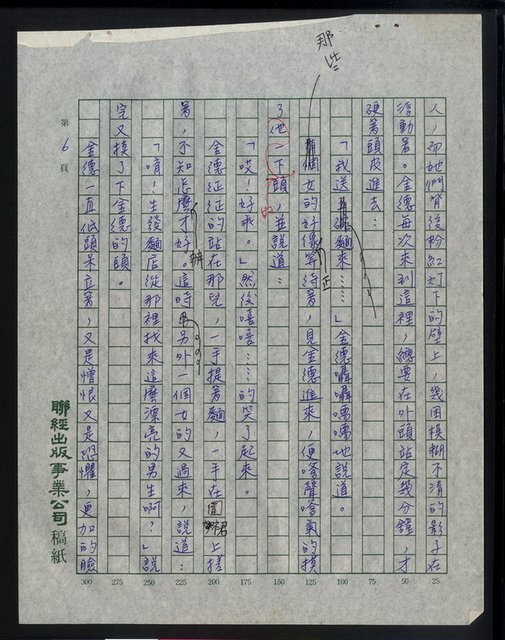 那些
人，而她們背後粉紅灯下的壁上，幾團模糊不清的影子在
浮動著。金德每次來到這裡，總要在外頭站定幾分鐘，才
硬著頭皮進去…
「我送 麵來……」金德囁囁嚅嚅地說道。
個女的好像正等待著，見金德進來，便嗲聲嗲氣的摸
了他一下頭，並說道：
的
「哎！好乖。」然後嘻嘻……的笑了起來。
金德怔怔的站在那兒，一手提著麵，一手在圍裙上搓
著，不知怎麼辦才好。這時另外一個女的又過來，說道：
「唷！生發麵店從那裡找來這麼漂亮的男生啊？」說
完又摸了下金德的頭。
金德一直低頭呆立著，又是憎恨又是恐懼，更加的臉
第6頁
聯經出版事業公司稿紙
25
50
75
100
125
150
175
200
225
250
275
300